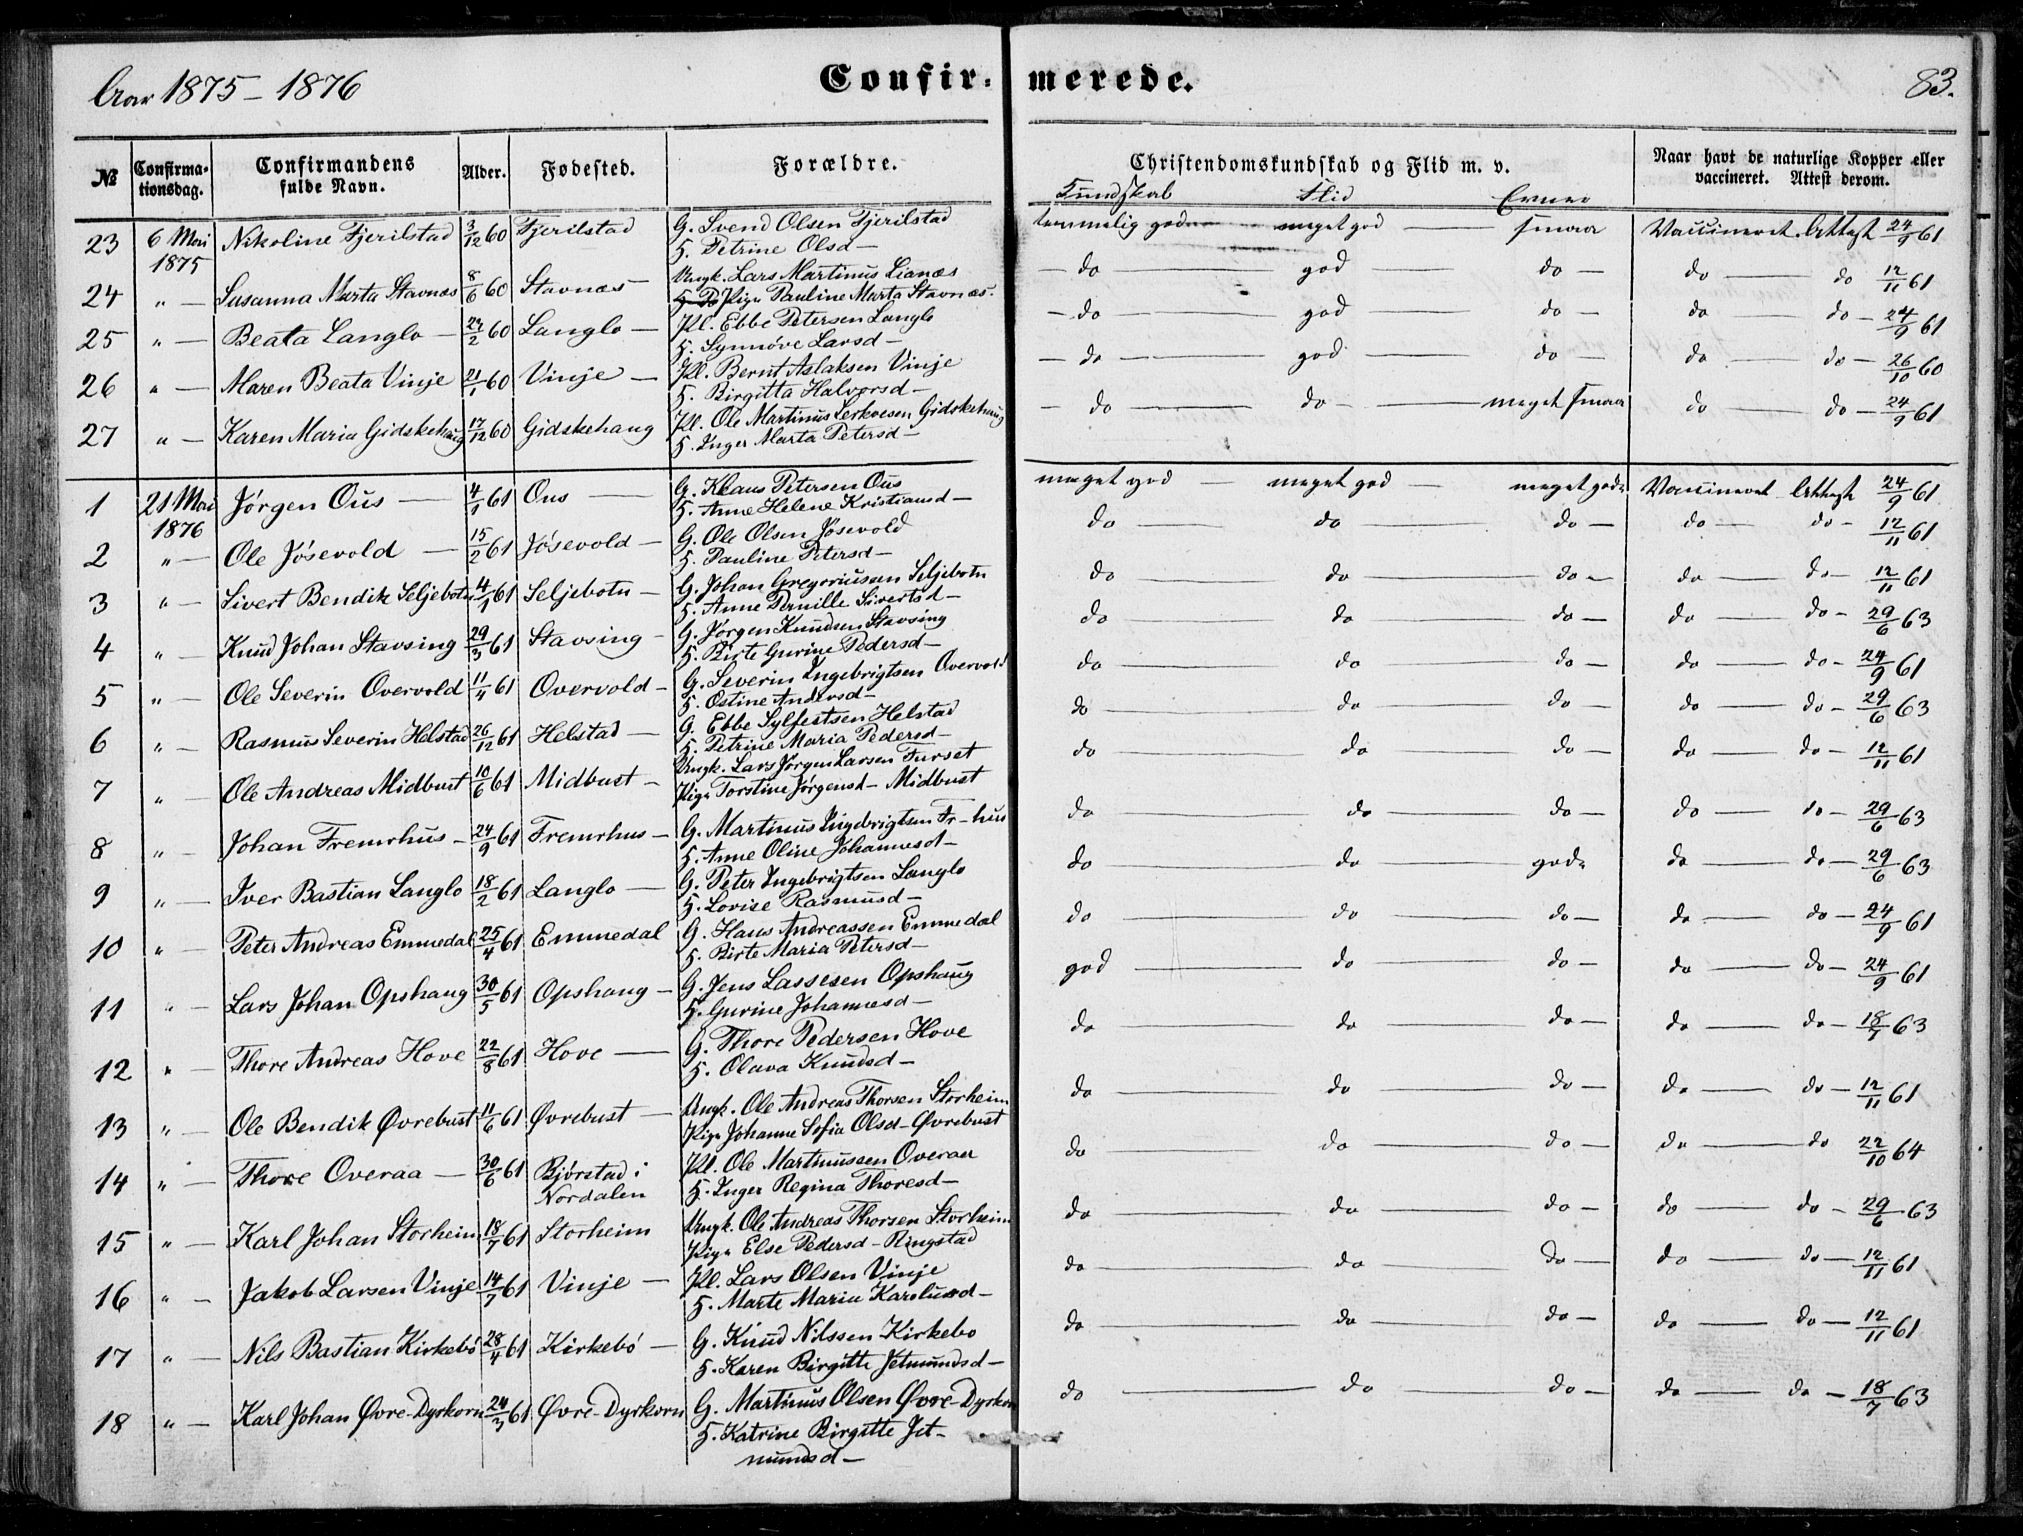 Aar 1875-1876 Confirmerede. 83.
№ Confirmationsdag. Confirmandens fulde Navn. Alder. Fødested. Forældre. Christendomskundskab og Flid m. v. Naar havt de naturlige Kopper eller vaccineret. Attest derom.
Kundskab Flid Evner
23 6 Mai 1875 Nikoline Fjerilstad 3/12 60 Fjerilstad G. Svend Olsen Fjerilstad H. Petrine Olsd— temmelig god meget god smaa Vaccineret Attest 24/9 61
24 " — Susanna Marta Stavnæs 8/6 60 Stavnæs Ungk. Lars Martinus Lianæs Pige Pauline Marta Stavnæs. — do god do — do do 12/11 61
25 " — Beata Langlo — 22/2 60 Langlo — Pl. Ebbe Petersen Langlo H. Synnøve Larsd — — do god do — do do — 24/9 61
26 " — Maren Beata Vinje 21/1 60 Vinje — Pl. Bernt Aslaksen Vinje H. Birgitta Halvorsd — — do god do — do do — 26/10 60
27 " — Karen Maria Gidskehaug 17/12 60 Gidskehaug Pl. Ole Martinus Gidskehaug H. Inger Marta Petersd — — do do meget smaa do do — 24/9 61
1 21 Mai 1876 Jørgen Ous — 4/1 61 Ous — G. Klaus Petersen Ous H. Anne Helene Kristiansd — meget god meget god meget gode Vaccineret Attest 24/9 61
2 " — Ole Jøsevold — 15/2 61 Jøsevold — G. Ole Olsen Jøsevold H. Pauline Petersd — do do do — do do — 12/11 61
3 " — Sivert Bendik Seljebotn 4/1 61 Seljebotn — G. Johan Gregoriussen Seljebotn H. Anne Pernille Sivertsd — do do do — do do — 12/11 61
4 " — Knud Johan Stavsing 29/3 61 Stavsing — G. Jørgen Knudsen Stavsing H. Birte Gurine Pedersd — do do do — do do — 29/6 63
5 " — Ole Severin Overvold 11/4 61 Overvold — G. Severin Ingebrigtsen Overvold H. Ostine Andersd — do do do — do do — 24/9 61
6 " — Rasmus Severin Helstad 26/12 61 Helstad — G. Ebbe Sylfestsen Helstad H. Petrine Maria Pedersd — do do do — do do — 29/6 63
7 " — Ole Andreas Midbust 10/6 61 Midbust — Ungk. Lars Jørgen Larsen Furset Pige Torstine Jørgensd — Midbust do do do — do do — 12/11 61
8 " — Johan Fremrhus — 24/9 61 Fremrhus — G. Martinus Ingebrigtsen Fr-hus H. Anne Oline Johannesd — do do do — do do — 29/6 63
9 " — Iver Bastian Langlo 18/2 61 Langlo — G. Peter Ingebrigtsen Langlo H. Lovise Rasmusd — do do gode do do — 29/6 63
10 " — Peter Andreas Emmedal 25/4 61 Emmedal G. Hans Andreassen Emmedal H. Birte Maria Petersd — do do do — do do — 24/9 61
11 " — Lars Johan Opshaug 30/5 61 Opshaug — G. Jens Lassesen Opshaug H. Gurine Johannesd — god do do — do do — 24/9 61
12 " — Thore Andreas Hove 22/8 61 Hove — G. Thore Pedersen Hove H. Olava Knudsd — do do do — do do — 18/7 63
13 " — Ole Bendik Øvrebust 11/6 61 Øvrebust — Ungk. Ole Andreas Thorsen Storheim Pige Johanne Sofia Olsd — Øvrebust do do do — do do — 12/11 61
14 " — Thore Overaa — 30/6 61 Bjørstad i Nordalen Pl. Ole Martinussen Overaa H. Inger Regina Thoresd — do do do — do do 22/10 64
15 " — Karl Johan Storheim 18/7 61 Storheim Ungk. Ole Andreas Thorsen Storheim Pige Else Pedersd — Ringstad do do do — do do — 29/6 63
16 " — Jakob Larsen Vinje 14/7 61 Vinje — Pl. Lars Olsen Vinje H. Marte Maria Karolusd — do do do — do do — 12/11 61
17 " — Nils Bastian Kirkebø 28/4 61 Kirkebø — G. Knud Nilssen Kirkebø H. Karen Birgitte Jetmundsd — do do do — do do — 12/11 61
18 " — Karl Johan Øvre-Dyrkorn 24/3 61 Øvre-Dyrkorn G. Martinus Olsen Øvre-Dyrkorn H. Katrine Birgitte Jetmundsd — do do do — do do — 18/7 63